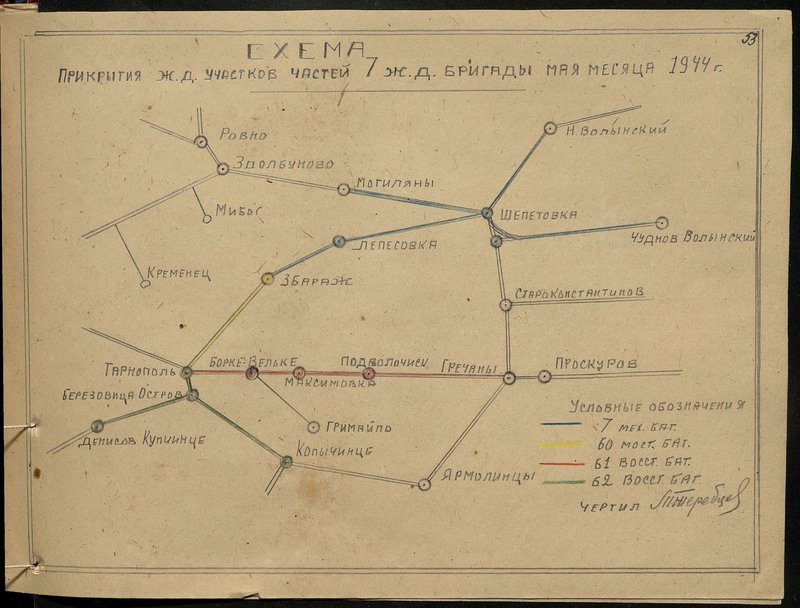 53
СХЕМА
ПРИКРЫТИЯ Ж.Д. УЧАСТКОВ ЧАСТЕЙ 7 Ж.Д. БРИГАДЫ МАЯ МЕСЯЦА 1944 г.
РОВНО
Н ВОЛЫНСКИЙ
ЗДОЛБУНОВО
МОГИЛЯНЫ
МИБОГ
ШЕПЕТОВКА
ЛЕПЕСОВКА
ЧУДНОВ ВОЛЫНСКИЙ
КРЕМЕНЕЦ
ЗБАРАЖ
СТАРОКОНСТАНТИНОВ
ТАРНОПОЛЬ
БОРКЕ-ВЕЛЬКЕ
ПОДВОЛОЧИСК
ГРЕЧАНЫ
ПРОСКУРОВ
МАКСИМОВКА
БЕРЕЗОВИЦА ОСТРОВ
ГРИМАЙЛО
ДЕНИСОВ КУПЧИНЦЕ
КОПЫЧИНЦЕ
ЯРМОЛИНЦЫ
УСЛОВНЫЕ ОБОЗНАЧЕНИЯ
7 МЕХ. БАТ.
60 МОСТ. БАТ.
61 ВОССТ. БАТ.
62 ВОССТ. БАТ.
ЧЕРТИЛ